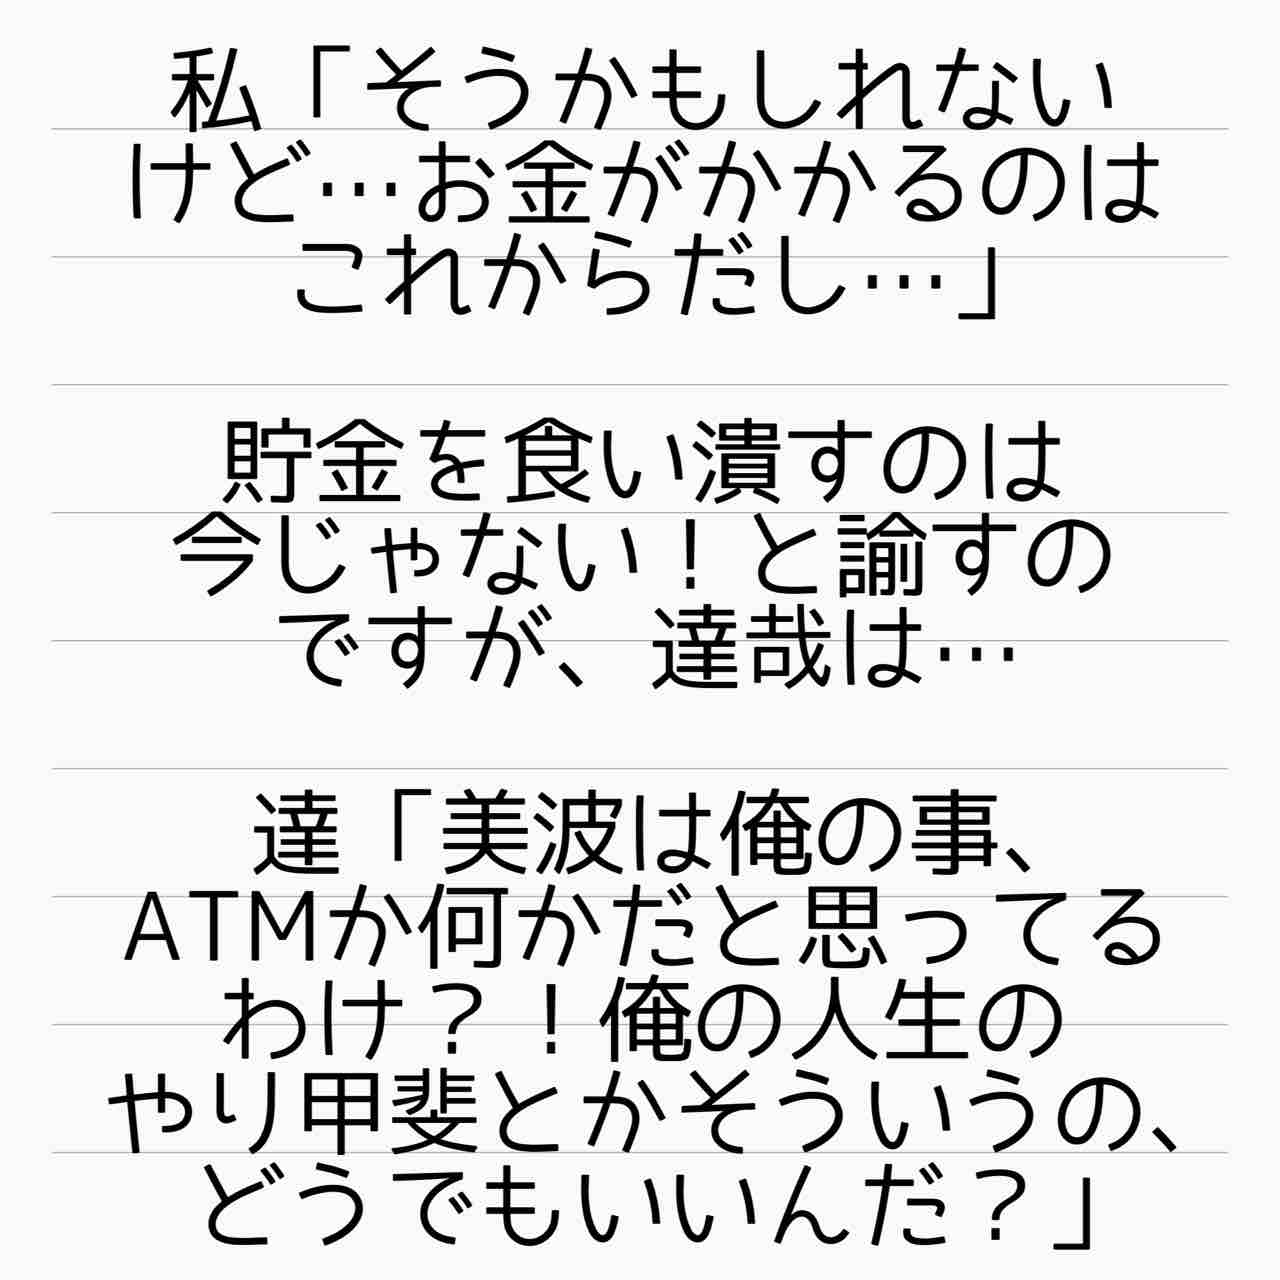 私「そうかもしれない
けど…お金がかかるのは
これからだし…」
貯金を食い潰すのは
今じゃない！と諭すの
ですが、達哉は…
達「美波は俺の事、
ATMか何かだと思ってる
わけ？！俺の人生の
やり甲斐とかそういうの、
どうでもいいんだ？」